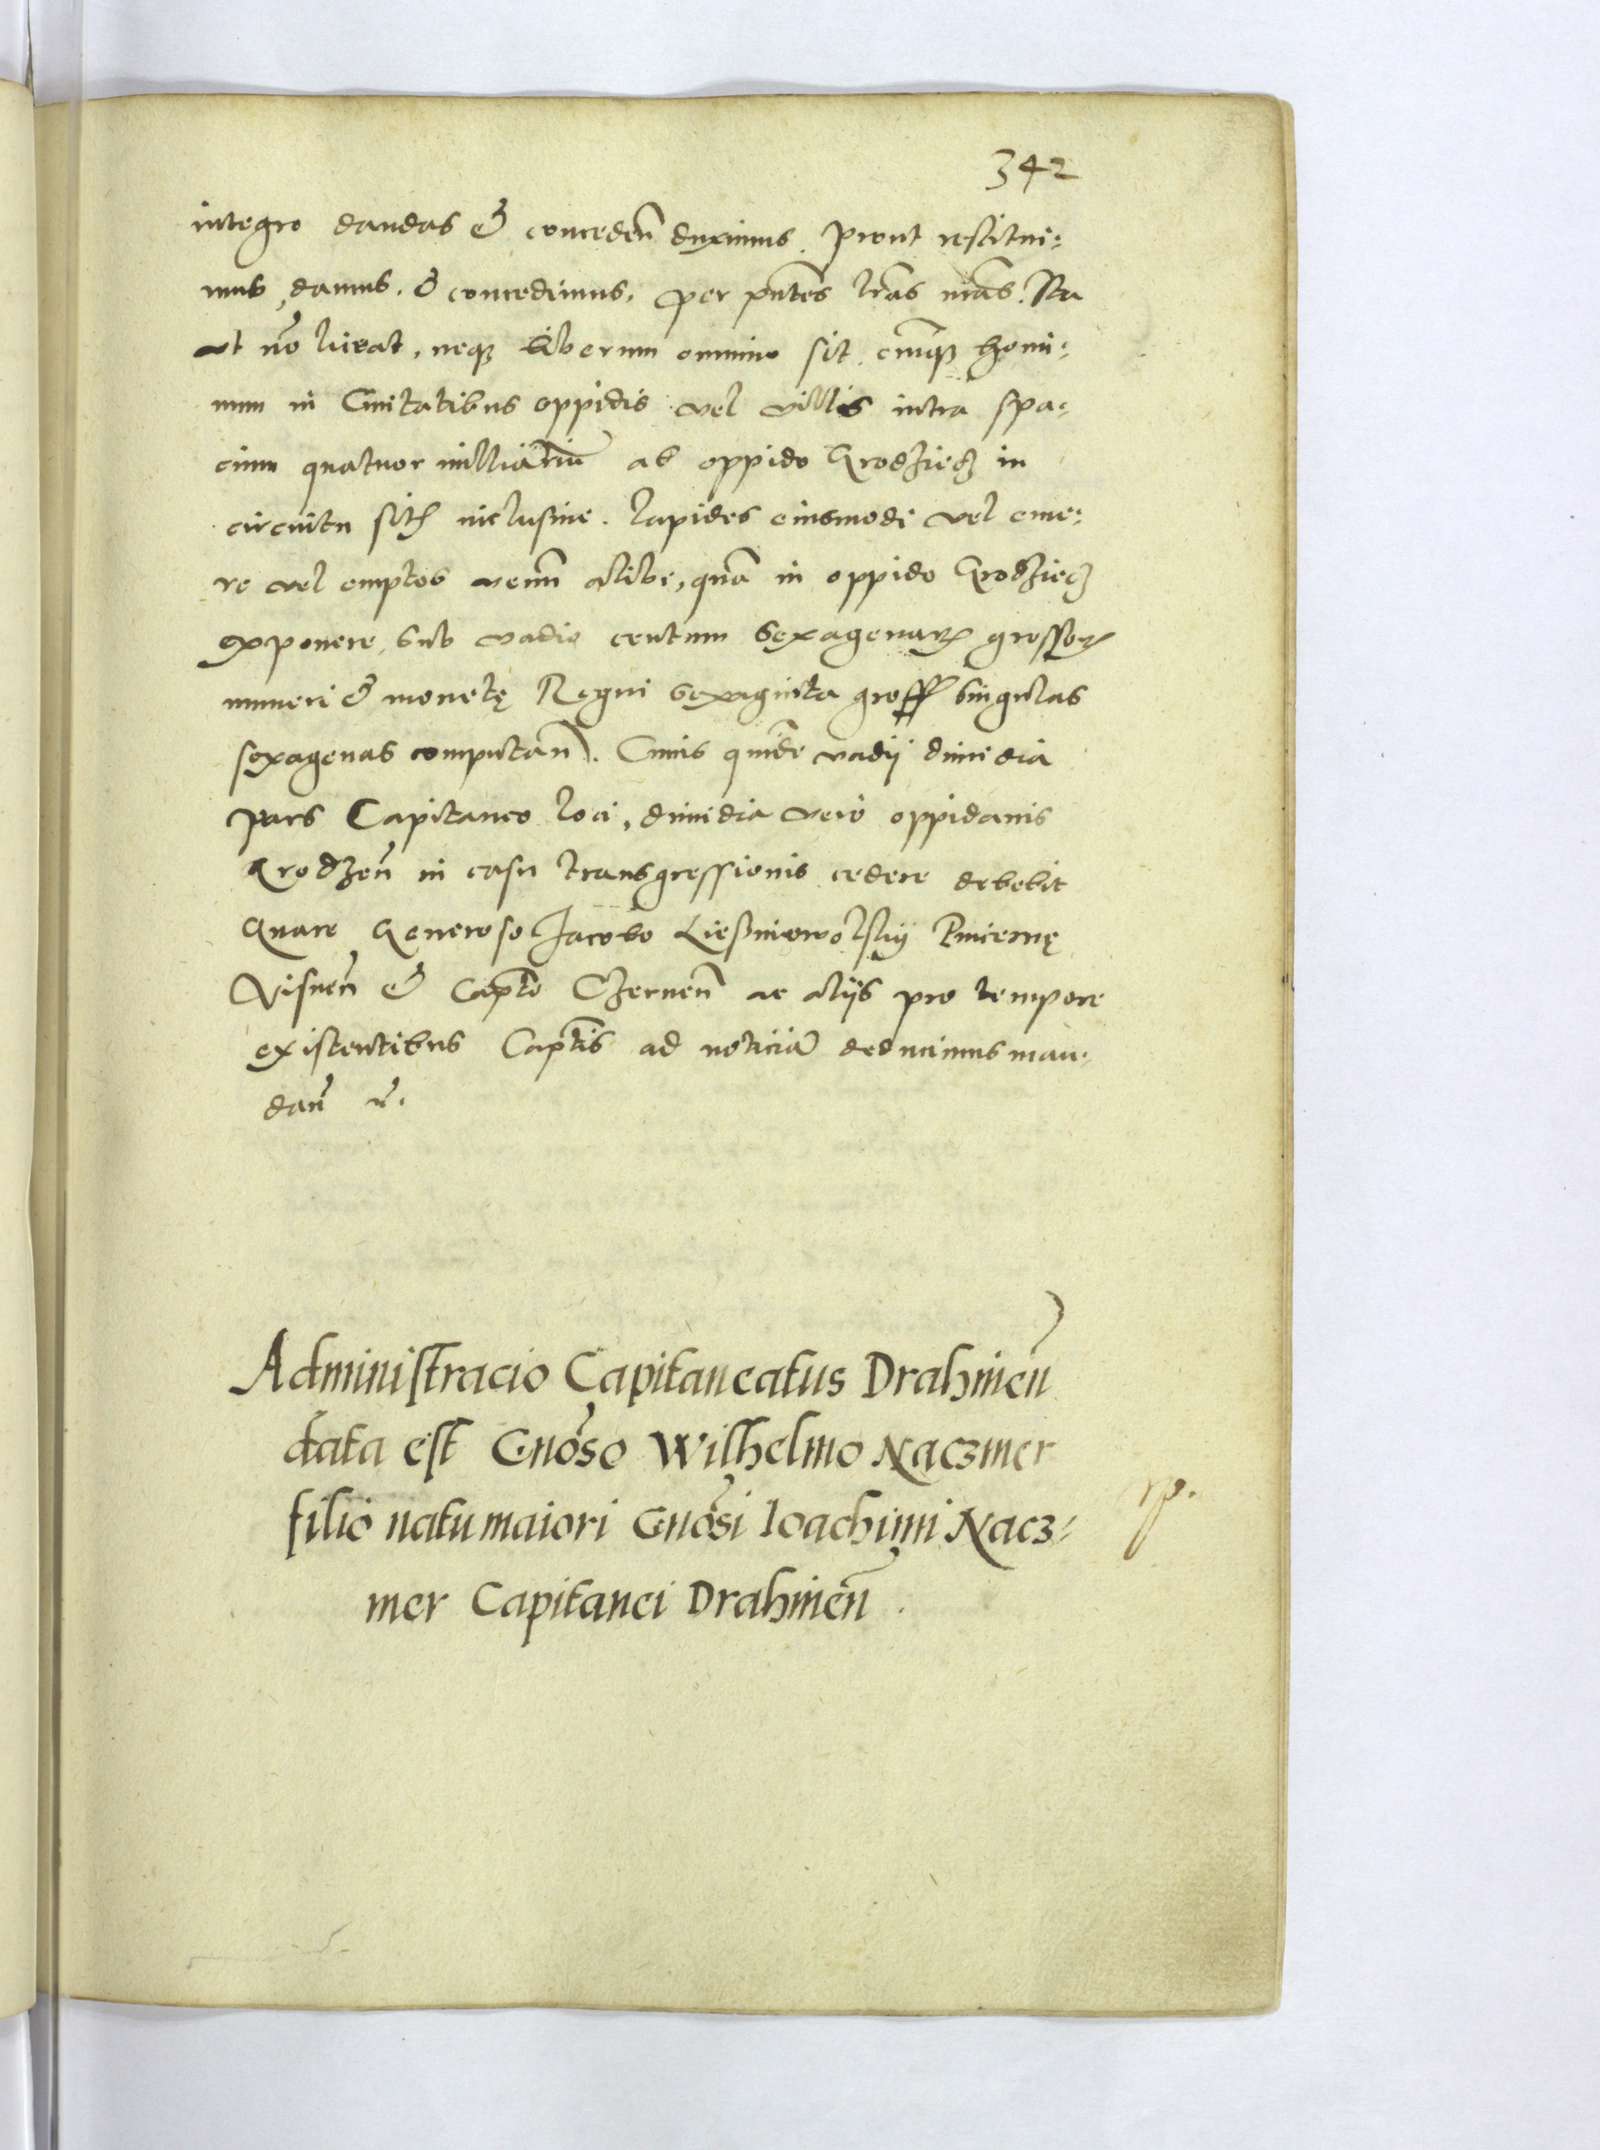 342
integro dandas & conceden̄ duximus. Prout restitui:
mus, damus, & concedimus, per pn̄tes lr̄as nr̄as. Ita
ut nō liceat, neqз liberum omnino sit cuiqз homi:
num in Ciuitatibus oppidis vel villis intra spa:
cium quatuor milliariū ab oppido Grodziecz in
circuitu sitis inclusiue. lapides eiusmodi vel eme:
re vel emptos venū alibi, quā in oppido Grodziecz
exponere, sub vadio centum sexagenarꝝ grossorꝝ
numeri & monetę Regni sexaginta gross singulas
sexagenas computan̄. Cuius quidē vadij dimidia
pars Capitaneo loci, dimidia vero oppidanis
Grodzen̄ in casu transgressionis cedere debebit
Quare Generoso Jacobo Liesniowolsky Pincernę
Visnen̄ & Capt̄o Czernen̄ ac aliis pro tempore
existentibus Capt̄is ad noticiā deducimus man:
dan̄ r̄.
Administracio Capitaneatus Drahimen̄
data est Gnōso Wilhelmo Naczmer
filio natu maiori Gnōsi Ioachimi Nacz:
mer Capitanei Drahimen̄.